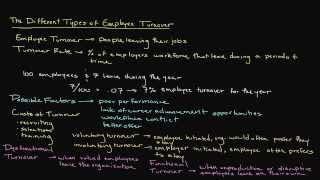 The Different Types of Employee Turnover
Employee Turnover → People leaving their jobs
Turnover Rate → % of employers workforce that leave during a period of
time
100 employees & 7 leave during the year
7/100 = .07 → 7% employee turnover for the year
Possible Factors → poor performance
lack of career advancement opportunities
workplace conflict
better offer
Costs of Turnover
- recruiting
- selection
- training
voluntary turnover → employee initiated, org. would often prefer they
stay
involuntary turnover → employer initiated, employee often prefers
to stay
Dysfunctional
Turnover → when valued employees
leave the organization
Functional
Turnover → when unproductive or disruptive
employees leave on their own